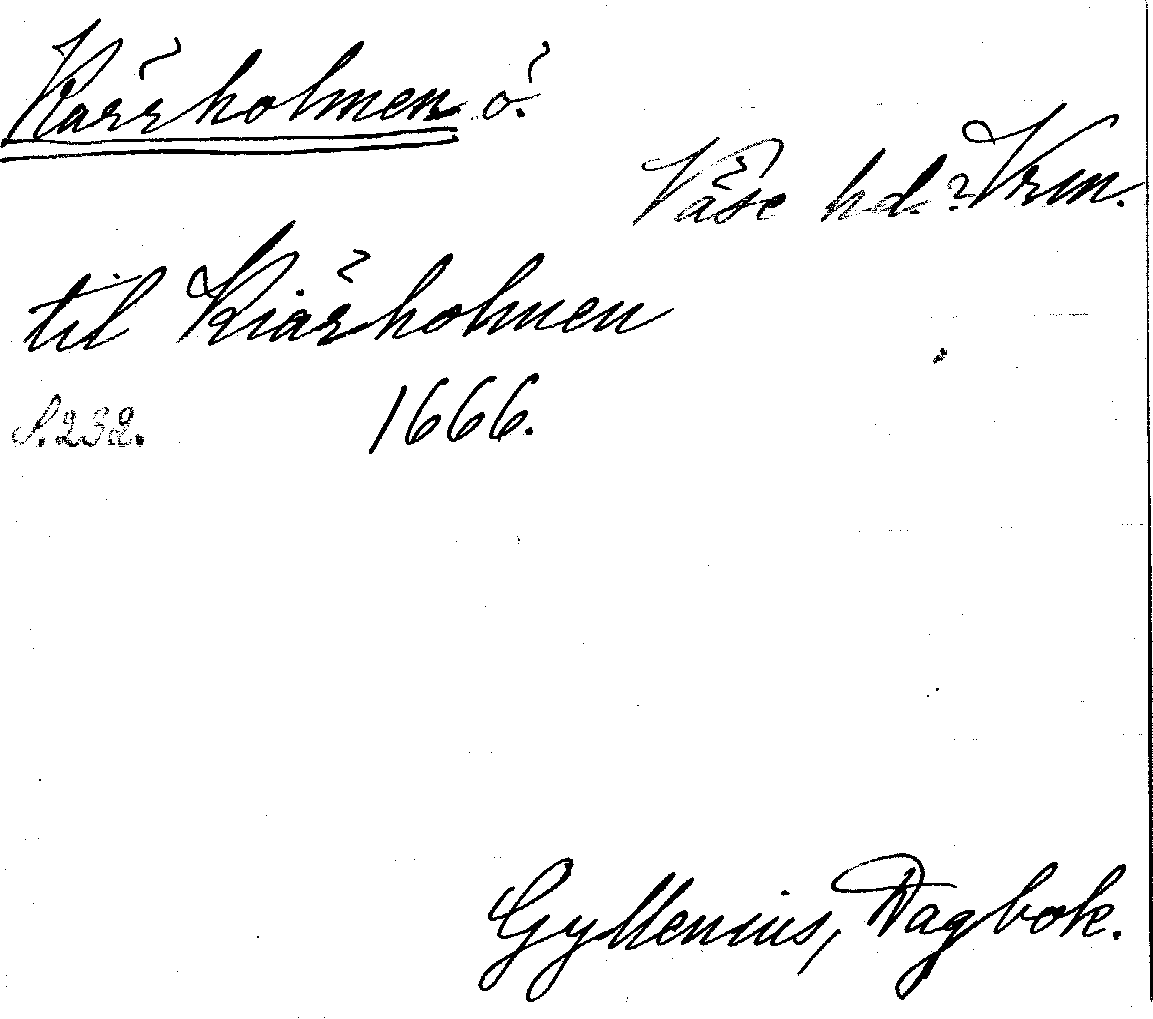 Kärrholmen ö.
Väse hd.? Vrm.
til Kiärholmen
S. 232. 1666.
Gyllenius, Dagbok.